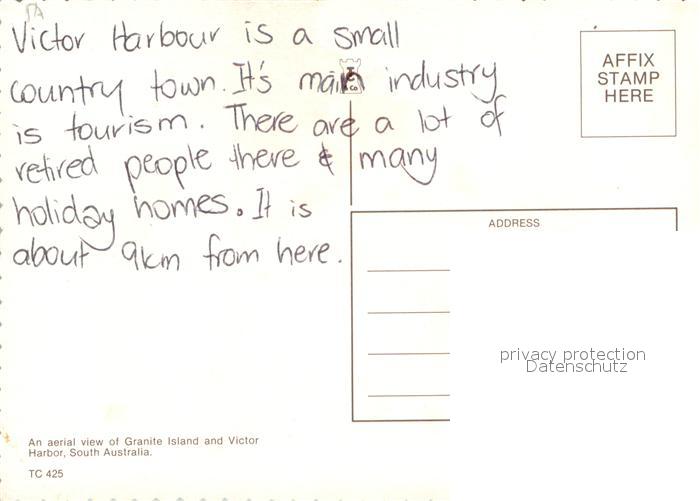 SA
Victor Harbour is a small
country town. It's main industry
is tourism. There are a lot of
retired people there & many
holiday homes. It is
about 9km from here.
AFFIX
STAMP
HERE
ADDRESS
privacy protection
Datenschutz
An aerial view of Granite Island and Victor
Harbor, South Australia.
TC 425